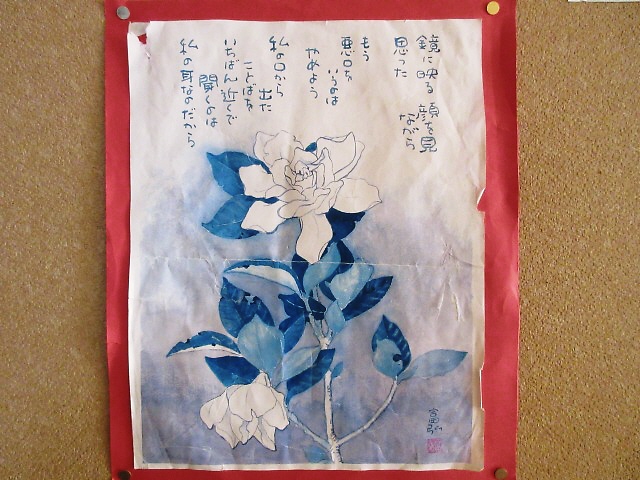 鏡に映る 顔を見
ながら
思った
もう
悪口を いうのは
やめよう
私の口から 出た
ことばを
いちばん近くで
聞くのは
私の耳なのだから
富弘